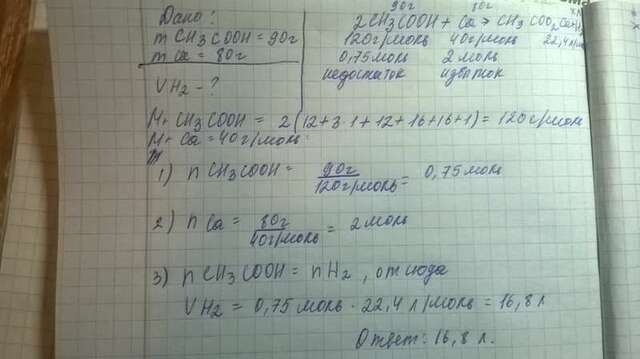 Дано:
m CH3COOH = 90г
m Ca = 80г
V H2 - ?
90г 80г
2CH3COOH + Ca > CH3COO2Ca+H2
120г/моль 40г/моль 22,4 л/
0,75 моль 2 моль
недостаток избыток
Mr CH3COOH = 2(12+3·1+12+16+16+1) = 120г/моль
Mr Ca = 40г/моль
1) n CH3COOH = 90г / 120г/моль = 0,75 моль
2) n Ca = 80г / 40г/моль = 2 моль
3) n CH3COOH = n H2, отсюда
V H2 = 0,75 моль · 22,4 л/моль = 16,8 л
Ответ: 16,8 л.